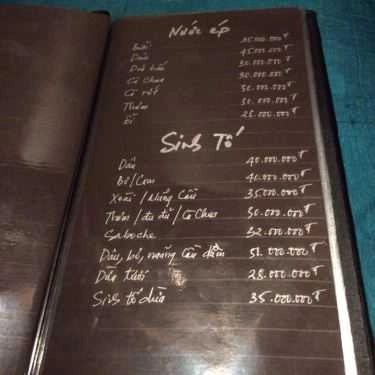 Nước ép
Bưởi 35.000.000đ
Dâu 45.000.000đ
Dưa hấu 30.000.000đ
Cà Chua 30.000.000đ
Cà rốt 30.000.000đ
Thơm 30.000.000đ
Ổi 28.000.000đ
Sinh Tố
Dâu 40.000.000đ
Bơ/Cam 40.000.000đ
Xoài/Mãng Cầu 35.000.000đ
Thơm/đu đủ/Cà Chua 30.000.000đ
Saboche 32.000.000đ
Dâu, bơ, mãng cầu dầm 51.000.000đ
Dừa tươi 28.000.000đ
Sinh tố dừa 35.000.000đ